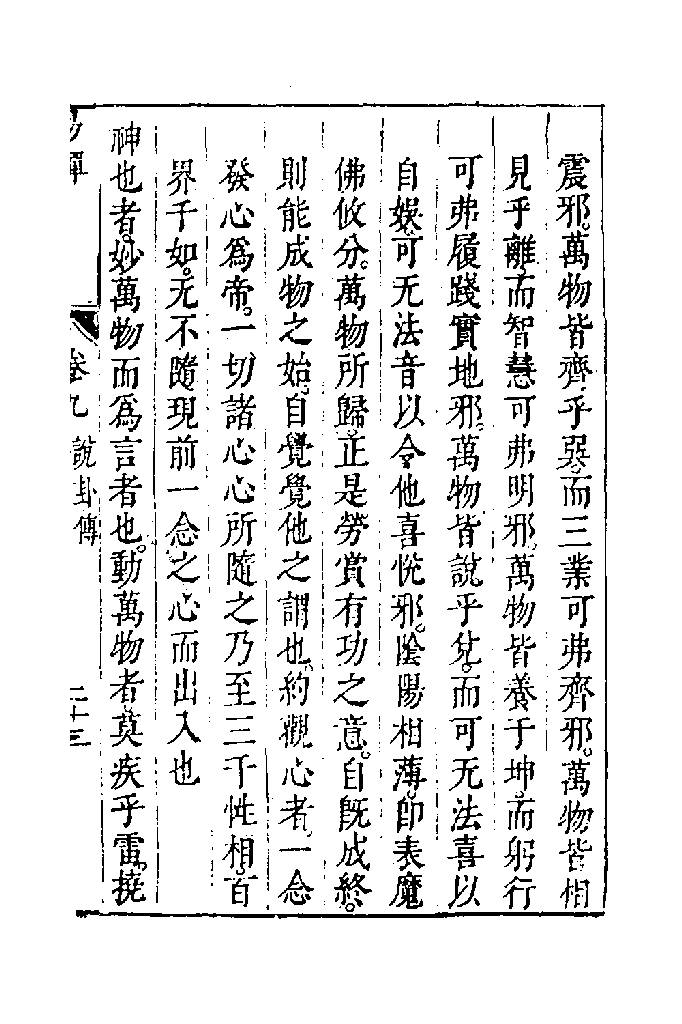 震邪。萬物皆齊乎巽。而三業可弗齊邪。萬物皆相
見乎離。而智慧可弗明邪。萬物皆養于坤。而躬行
可弗履踐實地邪。萬物皆說乎兌。而可无法喜以
自娛。可无法音以令他喜悅邪。陰陽相薄。即表魔
佛攸分。萬物所歸。正是勞賞有功之意。自既成終。
則能成物之始。自覺覺他之謂也。約觀心者。一念
發心爲帝。一切諸心心所隨之。乃至三千性相。百
界千如。无不隨現前一念之心而出入也
神也者。妙萬物而爲言者也。動萬物者。莫疾乎雷。撓
易禪
卷九 說卦傳
二十三